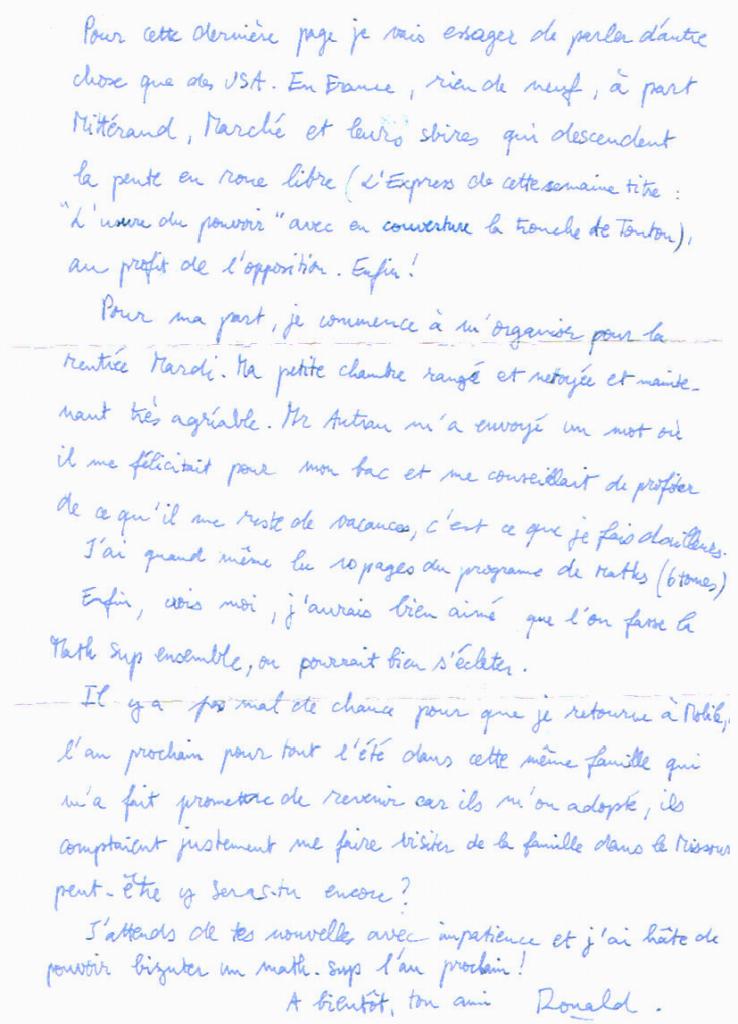 Pour cette dernière page je vais essayer de parler d'autre
chose que des USA. En France, rien de neuf, à part
Mittérand, Marché et leurs sbires qui descendent
la pente en roue libre (L'Express de cette semaine titre :
"L'usure du pouvoir" avec en couverture la tronche de Tonton),
au profit de l'opposition. Enfin !
Pour ma part, je commence à m'organiser pour la
rentrée Mardi. Ma petite chambre rangé et netoyée et mainte-
nant très agréable. Mr Autran m'a envoyé un mot où
il me félicitait pour mon bac et me conseillait de profiter
de ce qu'il me reste de vacances, c'est ce que je fais d'ailleurs.
J'ai quand même lu 10 pages du programe de Maths (6 tomes)
Enfin, crois moi, j'aurais bien aimé que l'on fasse la
Math Sup ensemble, on pourrait bien s'éclater.
Il y a pas mal de chance pour que je retourne à Mobile,
l'an prochain pour tout l'été dans cette même famille qui
m'a fait promettre de revenir car ils m'on adopté, ils
comptaient justement me faire visiter de la famille dans le Missouri
peut-être y seras-tu encore ?
J'attends de tes nouvelles avec impatience et j'ai hâte de
pouvoir bizuter un math. sup l'an prochain !
A bientôt, ton ami Ronald.